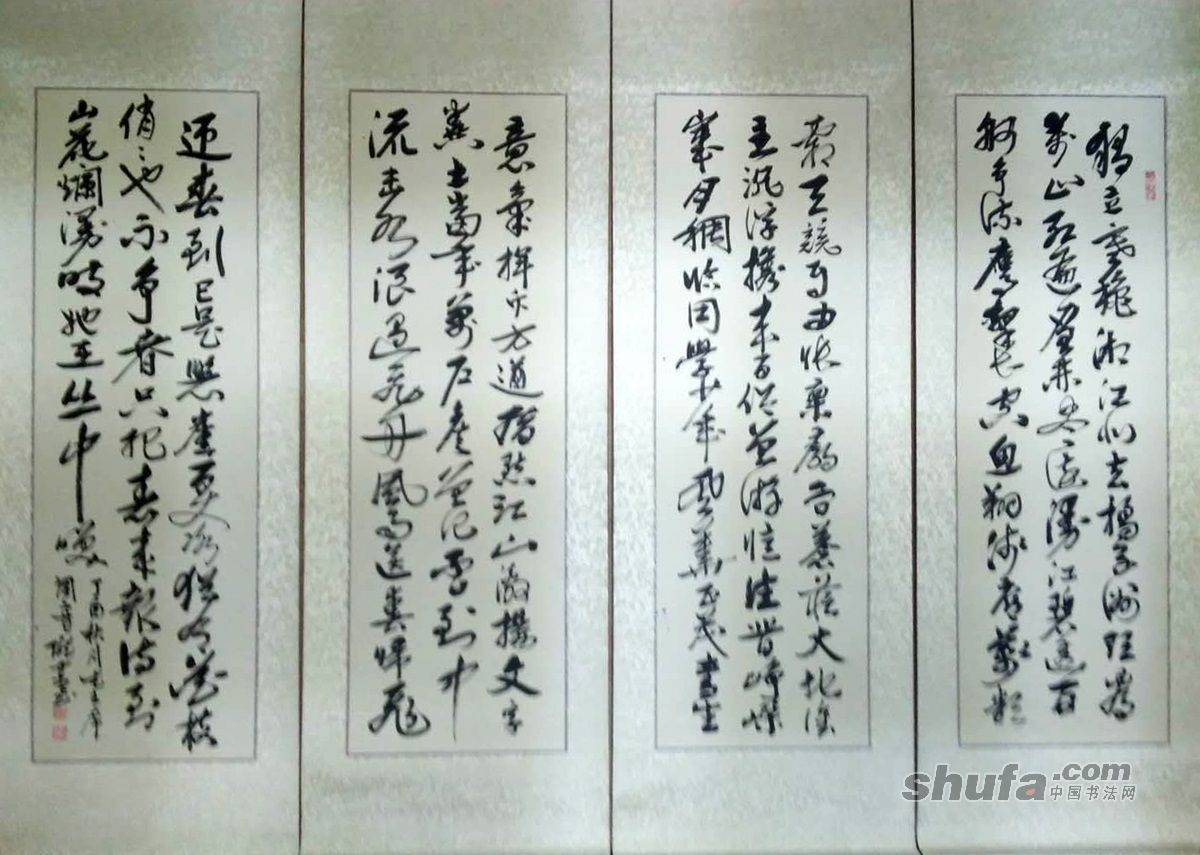 獨立寒穐湘江北去橘子洲頭看
萬山红遍層林盡染漫江碧透百
舸争流鹰擊长空鱼翔浅底萬類
霜天競自由怅寥廓问苍茫大地谁
主沉浮携来百侣曾游忆往昔峥嵘
歲月稠恰同學少年風華正茂書生
意氣揮斥方遒指点江山激揚文字
糞土當年萬户侯曾记否到中
流击水浪遏飞舟風雨送春歸飛
迎春到已是懸崖百丈冰猶有花枝
俏俏也不争春只把春来報待到
山花爛漫時她在丛中笑
丁酉秋月
shufa.com
中国书法网